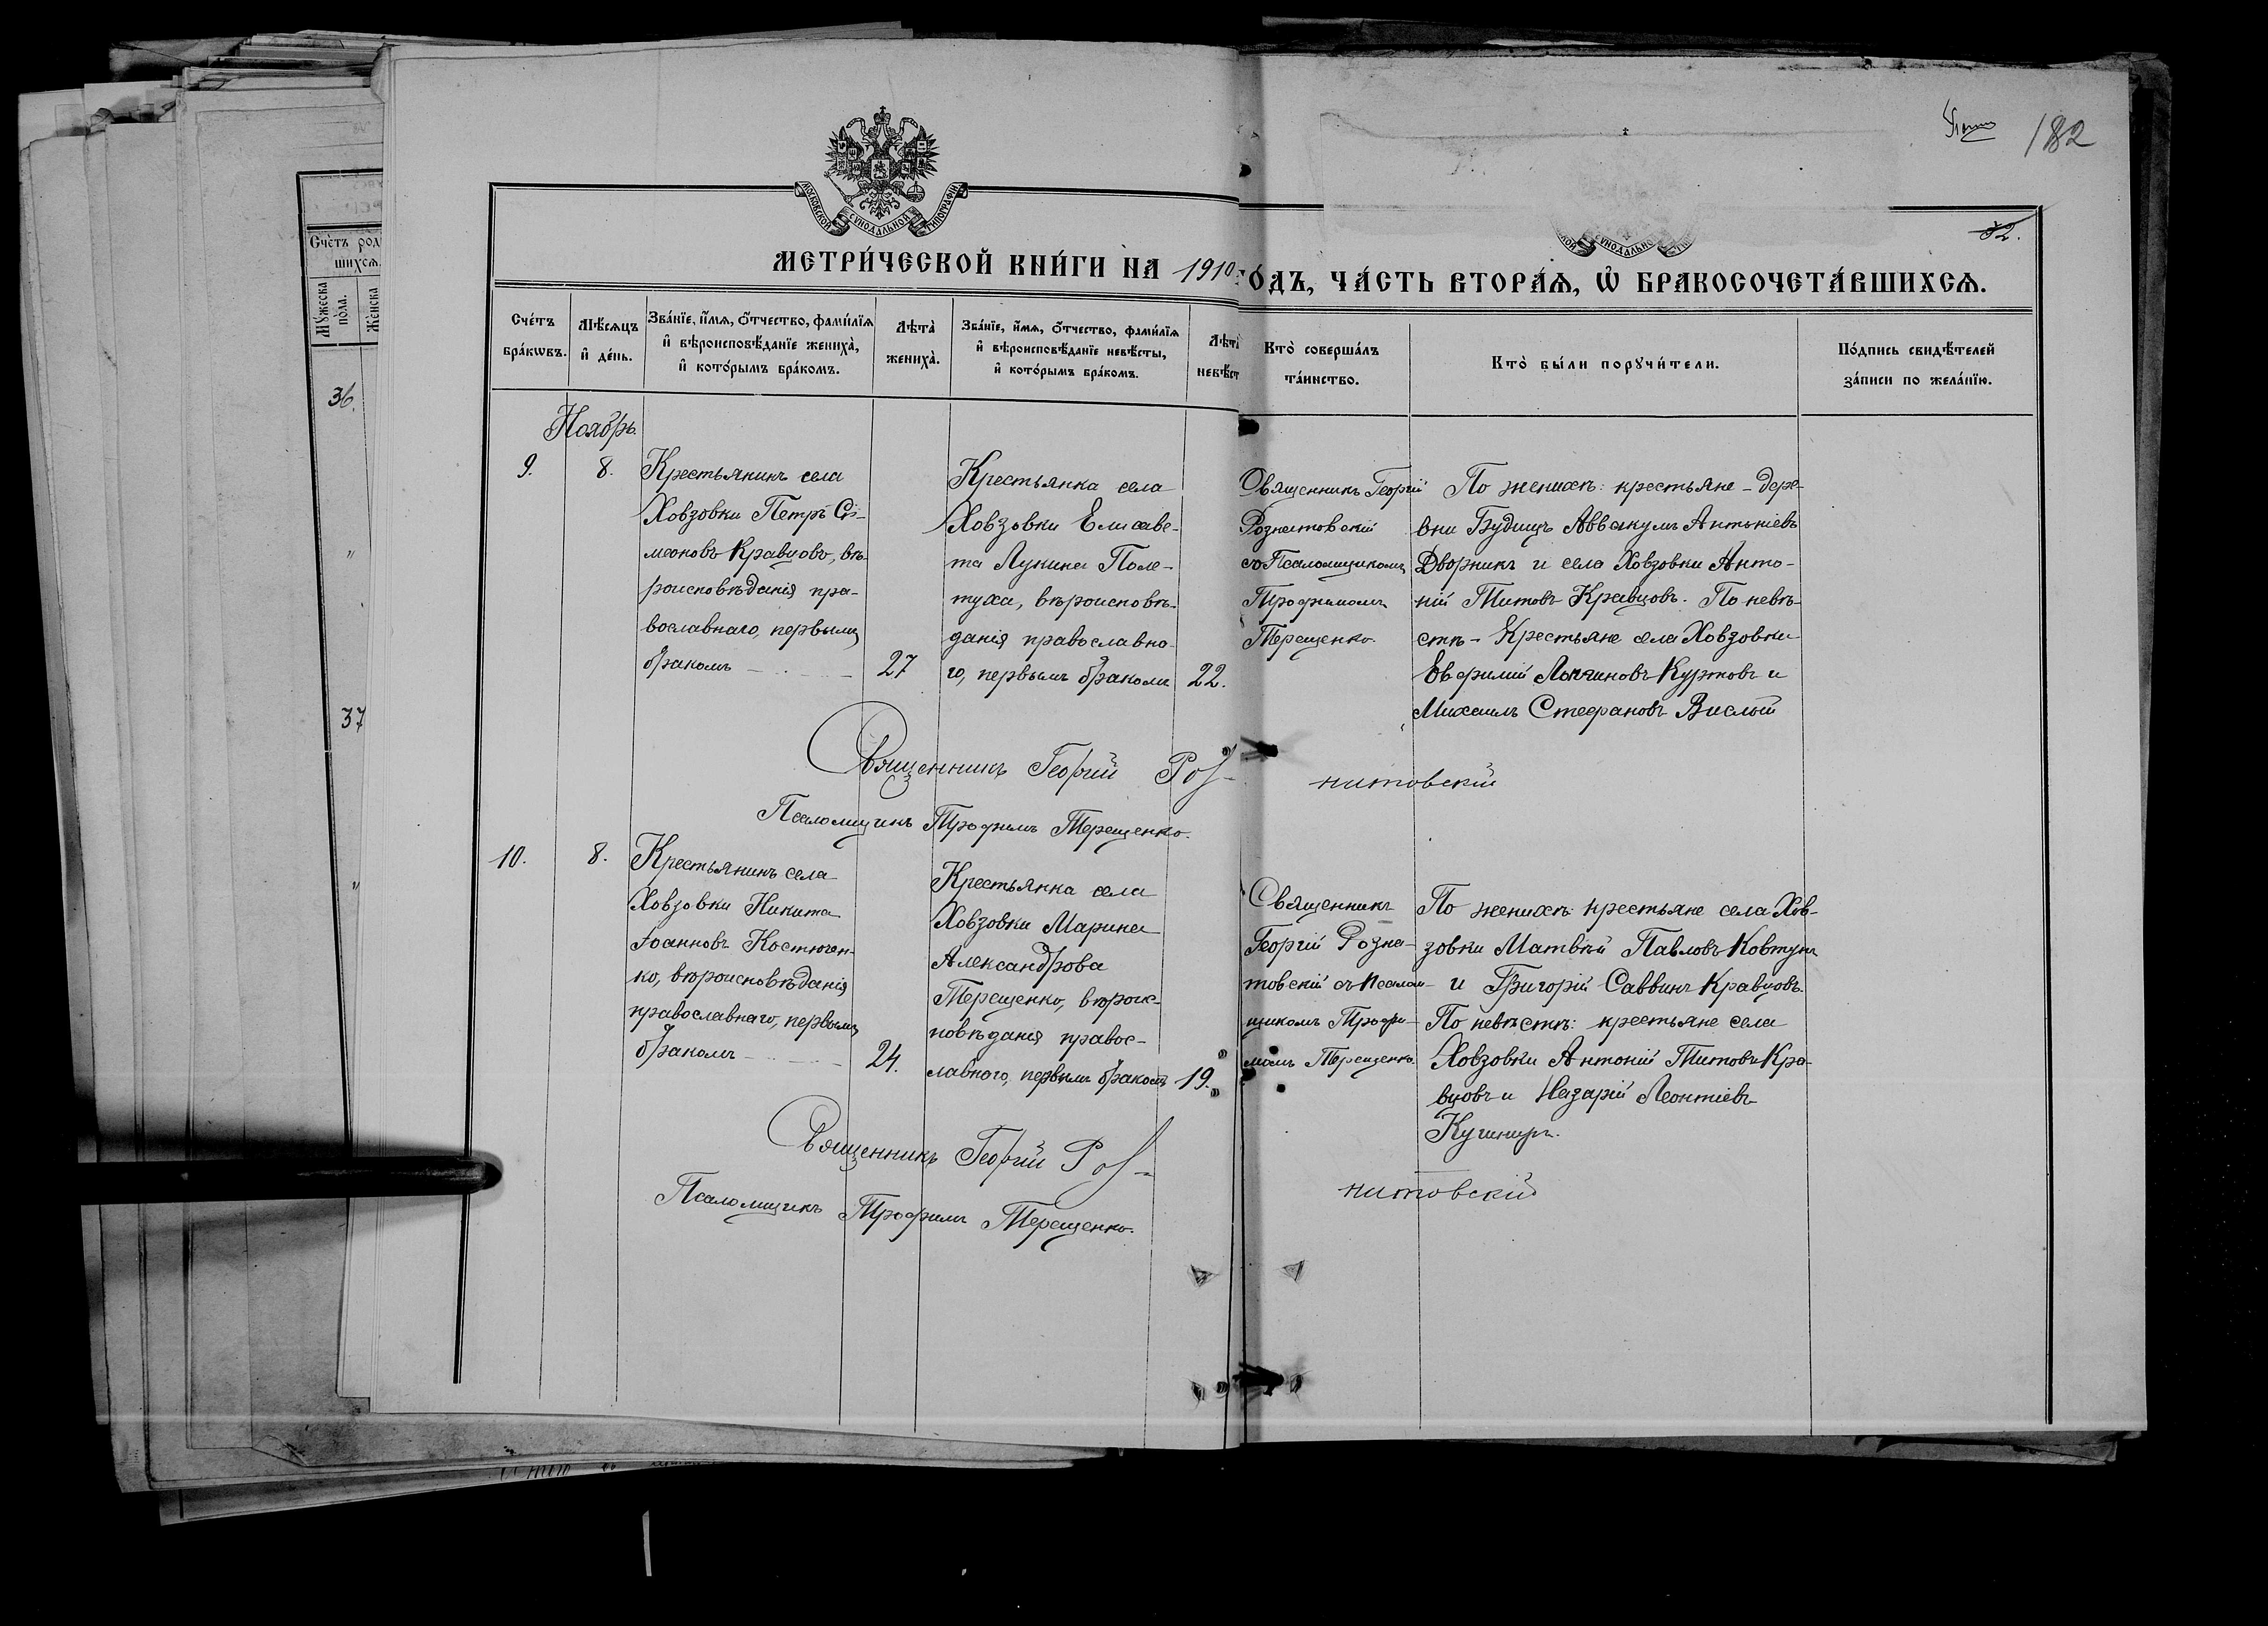 182
32.
МОСКОВСКОЙ СѴНОДАЛЬНОЙ ТИПОГРАФІИ
СѴНОДАЛЬНО
МЕТРИ́ЧЕСКОЙ КНИ́ГИ НА 1910 ГО́ДЪ, ЧА́СТЬ ВТОРА́Ѧ, Ѡ҆ БРАКОСОЧЕТА́ВШИХСѦ.
Счетъ род
шихсѧ
Мꙋжеска
пола.
Женска
36.
"
37
"
Сче́тъ
бра́кѡвъ.
Мѣ́сѧцъ
и҆ де́нь.
Зва́нїе, и҆́мѧ, ѻ҆́тчество, фами́лїѧ
и҆ вѣроисповѣ́данїе жениха̀,
и҆ кото́рымъ бра́комъ.
Лѣта̀
жениха̀.
Зва́нїе, и҆́мѧ, ѻ҆́тчество, фами́лїѧ
и҆ вѣроисповѣ́данїе невѣ́сты,
и҆ кото́рымъ бра́комъ.
Лѣта
невѣ́ст
Кто̀ соверша́лъ
та́инство.
Кто̀ бы́ли порꙋчи́тели.
По́дпись свидѣ́телей
за́писи по жела́нїю.
Ноябрь.
9.
8.
Крестьянинъ села
Ховзовки Петръ Сі-
меоновъ Кравцовъ, вѣ-
роисповѣданія пра-
вославнаго, первымъ
бракомъ
27
Крестьянка села
Ховзовки Елисаве-
та Лукина Поле-
туха, вѣроисповѣ-
данія православна-
го, первымъ бракомъ
22.
Священникъ Георгій
Рознатовскій
со Псаломщикомъ
Трофимомъ
Терещенко.
По женихѣ: крестьяне - дере-
вни Будищъ Аввакумъ Антоніевъ
Дворникъ и села Ховзовки Анто-
ній Титовъ Кравцовъ. По невѣ-
стѣ - Крестьяне села Ховзовки
Евфимій Куртовъ и
Михаилъ Стефановъ Вислый
Священникъ Георгій Роз-
нитовскій
Псаломщикъ Трофимъ Терещенко.
10.
8.
Крестьянинъ села
Ховзовки Никита
Іоанновъ Костючен-
ко, вѣроисповѣданія
православнаго, первымъ
бракомъ
24.
Крестьянка села
Ховзовки Марина
Александрова
Терещенко, вѣроис-
повѣданія правос-
лавного, первымъ бракомъ
19.
Священникъ
Георгій Розна-
товскій съ Псалом-
щикомъ Трофи-
момъ Терещенко.
По женихѣ: крестьяне села Хов-
зовки Матвѣй Павловъ Ковтунъ
и Григорій Саввинъ Кравцовъ.
По невѣстѣ: крестьяне села
Ховзовки Антоній Титовъ Кра-
вцовъ и Назарій Леонтіевъ
Кушниръ.
Священникъ Георгій Роз-
нитовскій
Псаломщикъ Трофимъ Терещенко.